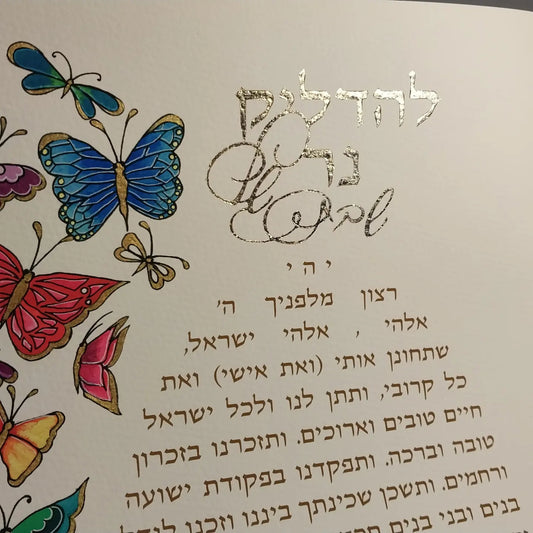 להדליק
נר
של
שבת
יהי
רצון מלפניך ה'
אלהי , אלהי ישראל,
שתחונן אותי (ואת אישי) ואת
כל קרובי, ותתן לנו ולכל ישראל
חיים טובים וארוכים. ותזכרנו בזכרון
טובה וברכה. ותפקדנו בפקודת ישועה
ורחמים. ותשכן שכינתך ביננו וזכנו לגדל
בנים ובני בנים